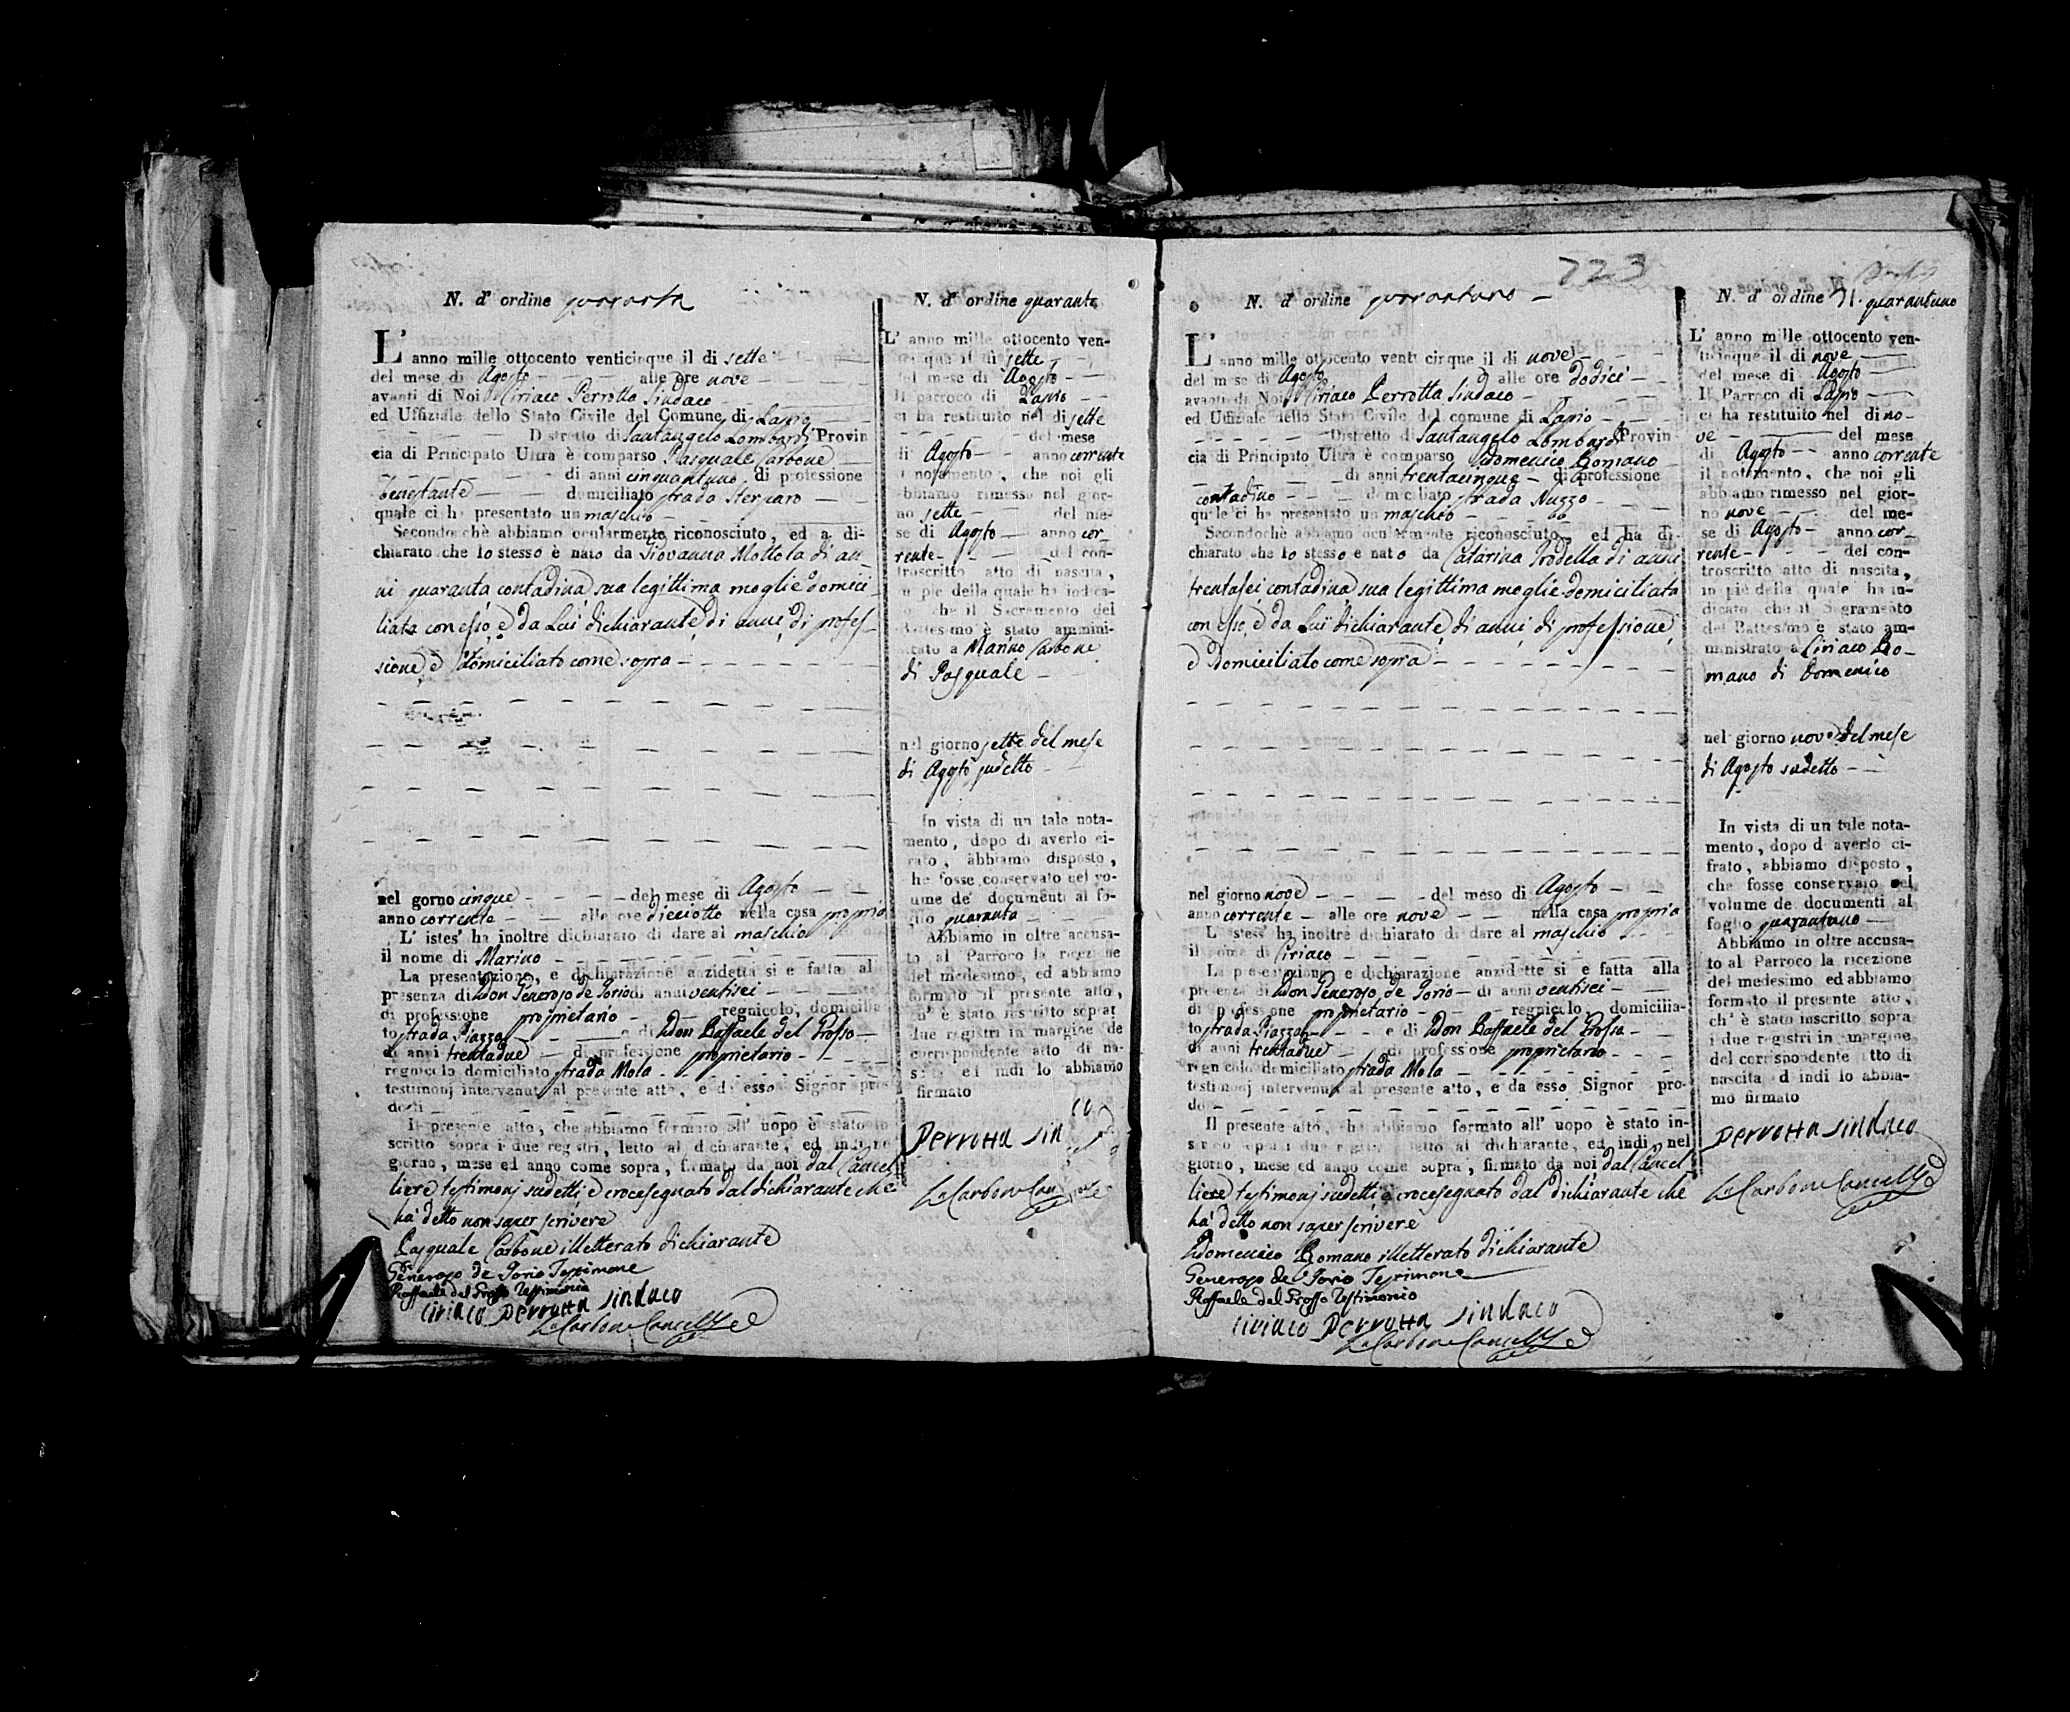 N. d' ordine quaranta
L' anno mille ottocento venticinque il di sette
del mese di Agosto alle ore nove
avanti di Noi Ciriaco Perrotta Sindaco
ed Uffiziale dello Stato Civile del Comune di Lapio
Distretto di Santangelo Lombardi Provin
cia di Principato Ultra è comparso Pasquale Carbone
di anni cinquantuno di professione
benestante domiciliato strada Sterparo
quale ci ha presentato un maschio
Secondochè abbiamo ocularmente riconosciuto, ed a di-
chiarato che lo stesso è nato da Giovanna Mottola di an-
ni quaranta contadina sua legittima moglie domici-
liata con esso, e da Lui dichiarante di anni, di profes-
sione, e domiciliato come sopra
nel gorno cinque del mese di Agosto
anno corrente alle ore dieciotto nella casa propria
L' istes' ha inoltre dichiarato di dare al maschio
il nome di Marino
La presentazione, e dichiarazione anzidetta si e fatta al
presenza di Don Generoso de Iorio di anni ventisei
di professione proprietario regnicolo, domicilia
to strada Piazza e di Don Raffaele del Grosso
di anni trentadue di professione proprietario
regnicolo domiciliato strada Mola
testimonj intervenuti al presente atto, e di esso Signor pro
dotti
Il presente atto, che abbiamo formato all' uopo è stato in
scritto sopra i due registri, letto al dichiarante, ed indi nel
giorno, mese ed anno come sopra, firmato da noi dal Cancel
liere testimonj sudetti e crocesegnato dal dichiarante che
ha detto non saper scrivere
Pasquale Carbone illetterato dichiarante
Generoso de Iorio Testimone
Raffaele del Grosso Testimonio
Ciriaco Perrotta Sindaco
Carbone Cancelliere
N. d' ordine quaranta
L' anno mille ottocento ven-
ticinque il di sette
del mese di Agosto
Il parroco di Lapio
ci ha restituito nel di sette
del mese
di Agosto anno corrente
il notamento, che noi gli
abbiamo rimesso nel gior-
no sette del me-
se di Agosto anno cor-
rente del con-
troscritto atto di nascita,
in piè della quale ha indica-
to che il Sacremento del
Battesimo è stato ammini-
strato a Marino Carbone
di Pasquale
nel giorno sette del mese
di Agosto sudetto
In vista di un tale nota-
mento, dopo di averlo ci-
frato, abbiamo disposto,
che fosse conservato nel vo-
lume de' documenti al fo-
glio quaranta
Abbiamo in oltre accusa-
to al Parroco la ricezione
del medesimo, ed abbiamo
formato il presente atto,
ch' è stato inscritto sopra i
due registri in margine de
corrispondente atto di na-
scita ed indi lo abbiamo
firmato
Perrotta Sindaco
Carbone Cancelliere
723
N. d' ordine quarantuno
L' anno mille ottocento venti cinque il di nove
del mese di Agosto alle ore dodici
avanti di Noi Ciriaco Perrotta Sindaco
ed Uffiziale dello Stato Civile del comune di Lapio
Distretto di Santangelo Lombardi Provin
cia di Principato Ultra è comparso Domenico Romano
di anni trentacinque di professione
contadino domiciliato strada Nuzzo
quale ci ha presentato un maschio
Secondochè abbiamo ocularmente riconosciuto, ed ha di-
chiarato che lo stesso e nato da Catarina Prodella di anni
trentasei contadina, sua legittima moglie domiciliata
con esso, e da Lui dichiarante di anni di professione,
e domiciliato come sopra
nel giorno nove del meso di Agosto
anno corrente alle ore nove nella casa propria
L' stess' ha inoltre dichiarato di dare al maschio
il nome di Ciriaco
La presentazione e dichiarazione anzidette si e fatta alla
presenza di Don Generoso de Iorio di anni ventisei
di professione proprietario regnicolo, domicilia-
to strada Piazza e di Don Raffaele del Grosso
di anni trentadue di professione proprietario
regnicolo domiciliato strada Mola
testimonj intervenuti al presente atto, e da esso Signor pro-
dotti
Il presente atto, che abbiamo formato all' uopo è stato in-
scritto sopra i due registri letto al dichiarante, ed indi nel
giorno, mese ed anno come sopra, firmato da noi dal Cancel
liere testimonj sudetti e crocesegnato dal dichiarante che
ha detto non saper scrivere
Domenico Romano illetterato dichiarante
Generoso de Iorio Testimone
Raffaele del Grosso Testimonio
Ciriaco Perrotta Sindaco
Carbone Cancelliere
N. d' ordine 41. quarantuno
L' anno mille ottocento ven-
ticinque il di nove
del mese di Agosto
Il Parroco di Lapio
ci ha restituito nel di no-
ve del mese
di Agosto anno corrente
il notamento, che noi gli
abbiamo rimesso nel gior-
no nove del me-
se di Agosto anno cor-
rente del con-
troscritto atto di nascita,
in piè della quale ha in-
dicato che il Sagramento
del Battesimo e stato am-
ministrato a Ciriaco Ro-
mano di Domenico
nel giorno nove del mese
di Agosto sudetto
In vista di un tale nota-
mento, dopo d averlo ci-
frato, abbiamo disposto,
che fosse conservato nel
volume de documenti al
foglio quarantuno
Abbiamo in oltre accusa-
to al Parroco la ricezione
del medesimo ed abbiamo
formato il presente atto,
ch' è stato inscritto sopra
i due registri in margine
del corrispondente atto di
nascita ed indi lo abbia-
mo firmato
Perrotta Sindaco
Carbone Cancelliere